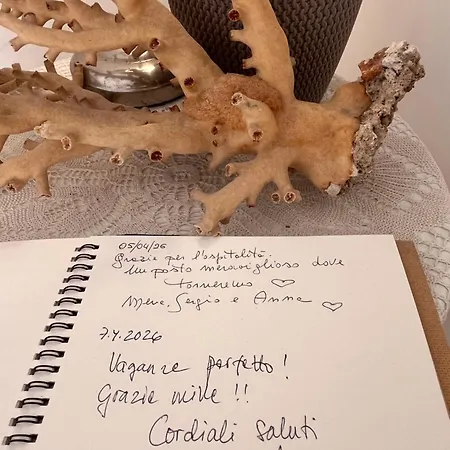 05/04/26
Grazie per l'ospitalità.
Un posto meraviglioso dove
torneremo ♡
Sergio e Anna ♡
7.4.2026
Vaganze perfetto!
Grazie mille!!
Cordiali saluti